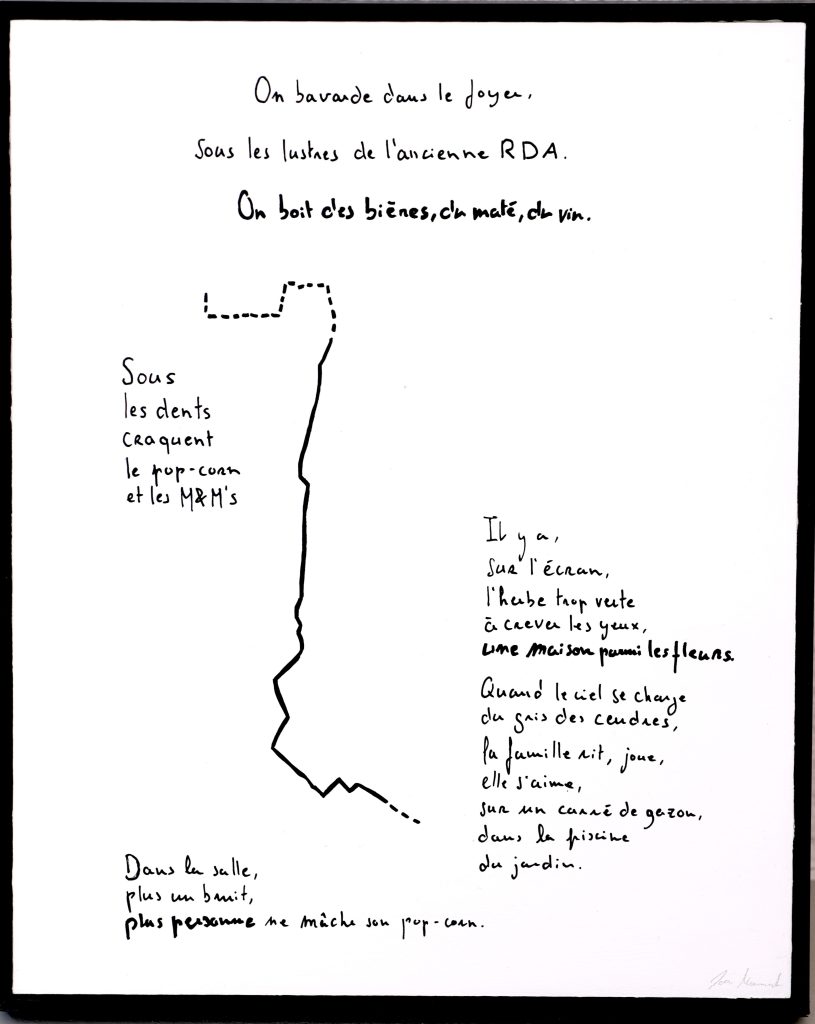 On bavarde dans le foyer,
Sous les lustres de l'ancienne RDA.
On boit des bières, du maté, du vin.
Sous
les dents
craquent
le pop-corn
et les M&M's
Il y a,
sur l'écran,
l'herbe trop verte
à crever les yeux,
une maison parmi les fleurs.
Quand le ciel se charge
du gris des cendres,
la famille rit, joue,
elle s'aime,
sur un carré de gazon,
dans la piscine
du jardin.
Dans la salle,
plus un bruit,
plus personne ne mâche son pop-corn.